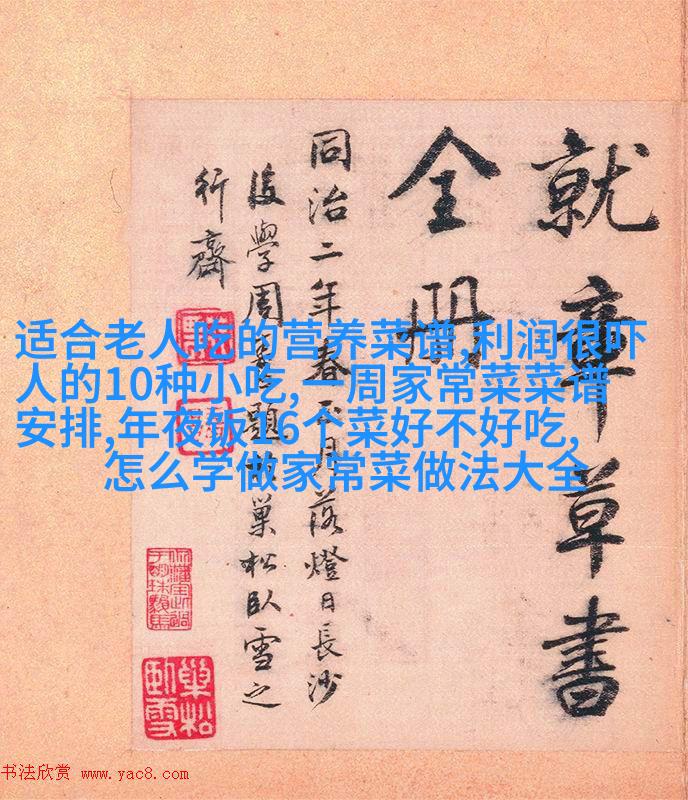 就章草書
全册
同治二年春正月落燈日長沙
後學周題於巢松臥雪之
行齋
适合老人吃的营养菜谱,利润很吓
人的10种小吃,一周家常菜菜谱
安排,年夜饭16个菜好不好吃,
怎么学做家常菜做法大全
巢松
臥雪
书法欣赏 www.yac8.com